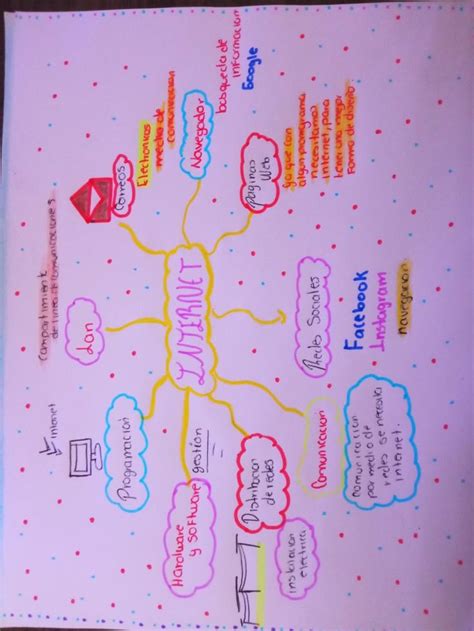 INTERNET
Correos
Electronicos
medio de
comunicacion
Navegador
busqueda de
informacion
Google
Paginas
Web
ya que con
algun programa
necesitamos
internet, para
tener una mejor
forma de diseño
Redes Sociales
Facebook
Instagram
navegacion
Comunicacion
comunicacion
por medio de
redes se necesita
internet.
Distribucion
de redes
instalacion
electrica
Hardware
y software
gestión
Programacion
internet
Lan
Compartimiento
de linea de comunicaciones